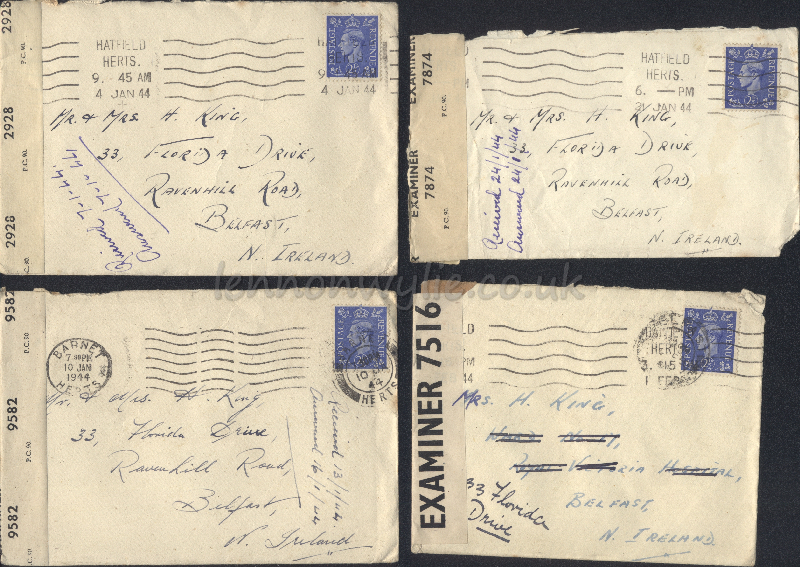 2928
P.C. 90.
2928
P.C. 90.
2928
HATFIELD
HERTS.
9. 45 AM
4 JAN 44
9 45 AM
4 JAN 44
POSTAGE
REVENUE
Mr. & Mrs. H. King,
33, Florida Drive,
Ravenhill Road,
Belfast,
N. Ireland.
Received 7-1-44.
Answered 7-1-44
EXAMINER
7874
P.C. 90.
EXAMINER
7874
P.C. 90.
HATFIELD
HERTS.
6. — PM
21 JAN 44
POSTAGE
REVENUE
Mr. & Mrs. H. King,
33, Florida Drive,
Ravenhill Road,
Belfast,
N. Ireland.
Received 24/1/44
Answered 24/1/44
lennonwylie.co.uk
9582
P.C. 90.
9582
P.C. 90.
9582
BARNET
10 JAN
1944
HERTS
POSTAGE
REVENUE
HERTS
Mr. & Mrs. H. King
33, Florida Drive,
Ravenhill Road,
Belfast,
N. Ireland
Received 13/1/44
Answered 16/1/44
EXAMINER 7516
HERTS
POSTAGE
REVENUE
Mrs. H. King,
Victoria Hospital,
33 Florida
Drive
Belfast,
N. Ireland.